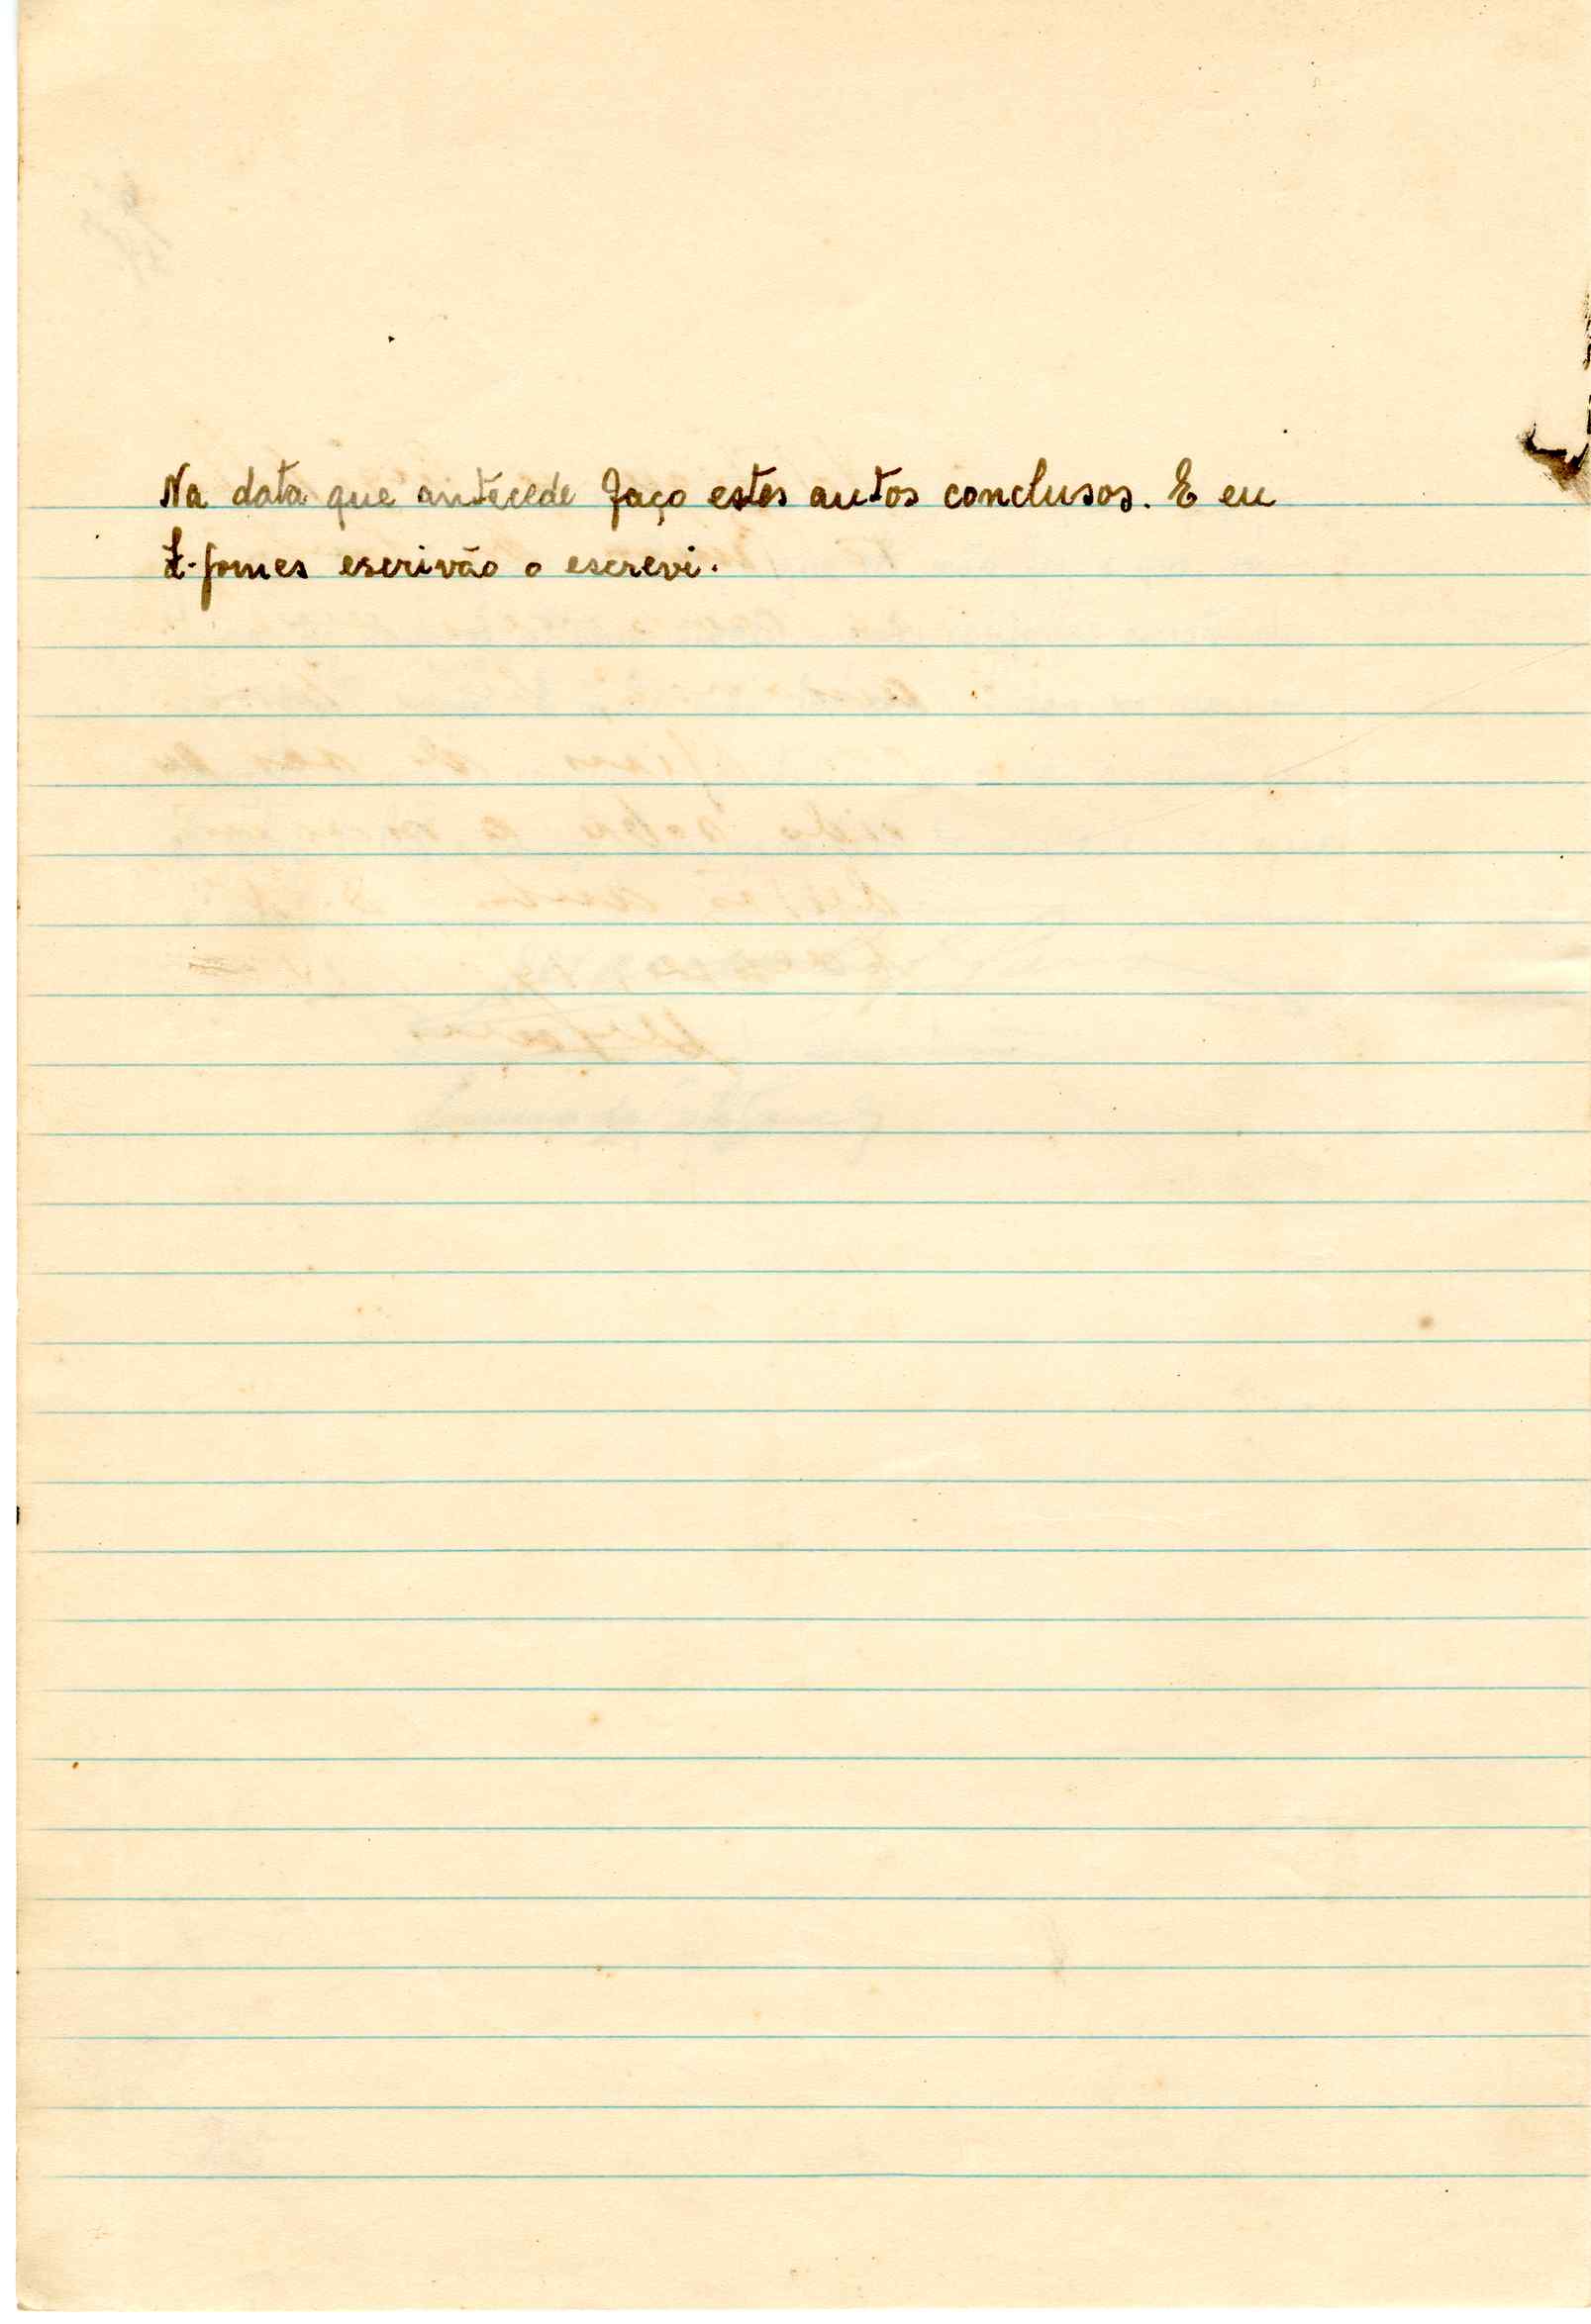 Na data que antecede faço estes autos conclusos. E eu
Z. Gomes escrivão o escrevi.